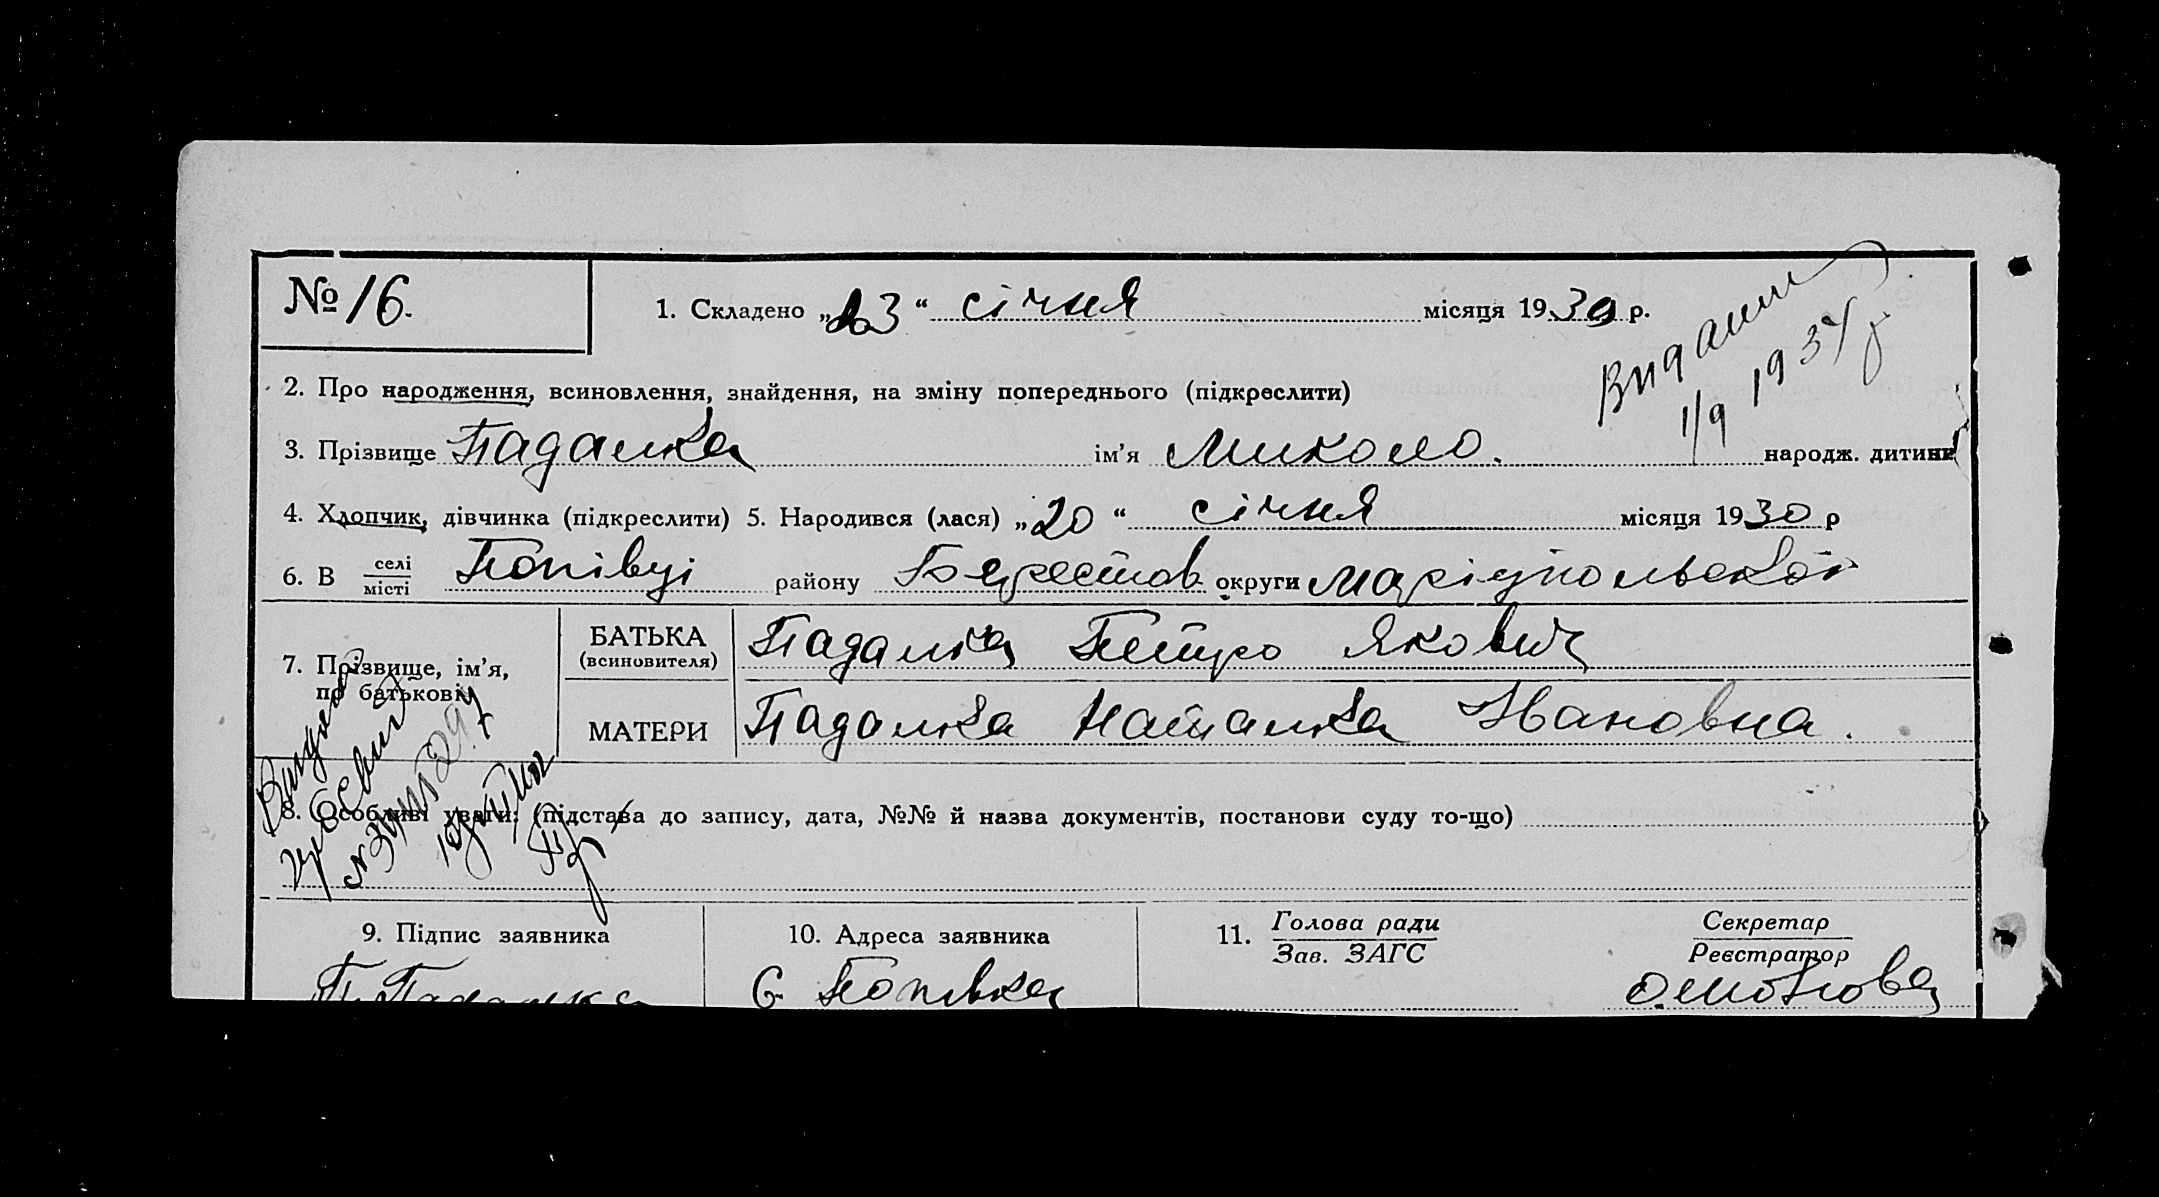 № 16.
1. Складено „23“ січня місяця 1930 р.
Видании
1/9 1937 р
2. Про народження, всиновлення, знайдення, на зміну попереднього (підкреслити)
3. Прізвище Падалка ім’я Миколо. народж. дитини
4. Хлопчик, дівчинка (підкреслити) 5. Народився (лася) „20“ січня місяця 1930 р
6. В селі місті Попівці району Берестов округи Маріупольской
7. Прізвище, ім’я, по батькові
БАТЬКА (всиновителя) Падалка Петро Якович
МАТЕРИ Падалка Наталка Ивановна.
8. Особливі уваги: (підстава до запису, дата, №№ й назва документів, постанови суду то-що)
9. Підпис заявника
10. Адреса заявника
11. Голова ради Зав. ЗАГС
Секретар Реєстратор
П. Падалка
С. Попівка